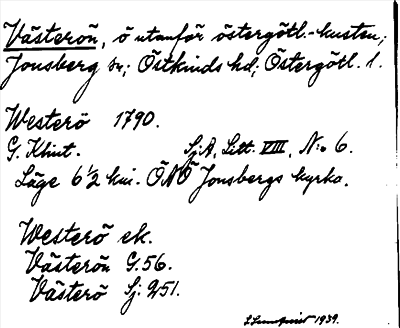 Västerön, ö utanför östergötl.-kusten;
Jonsberg sn; Östkinds hd; Östergötl. l.
Westerö 1790.
G. Klint. Sj.A, Litt. VIII, N:o 6.
Läge 6 1/2 km. ÖNÖ Jonsbergs kyrka.
Westerö ek.
Västerön G. 56.
Västerö Sj: 951.
1939.